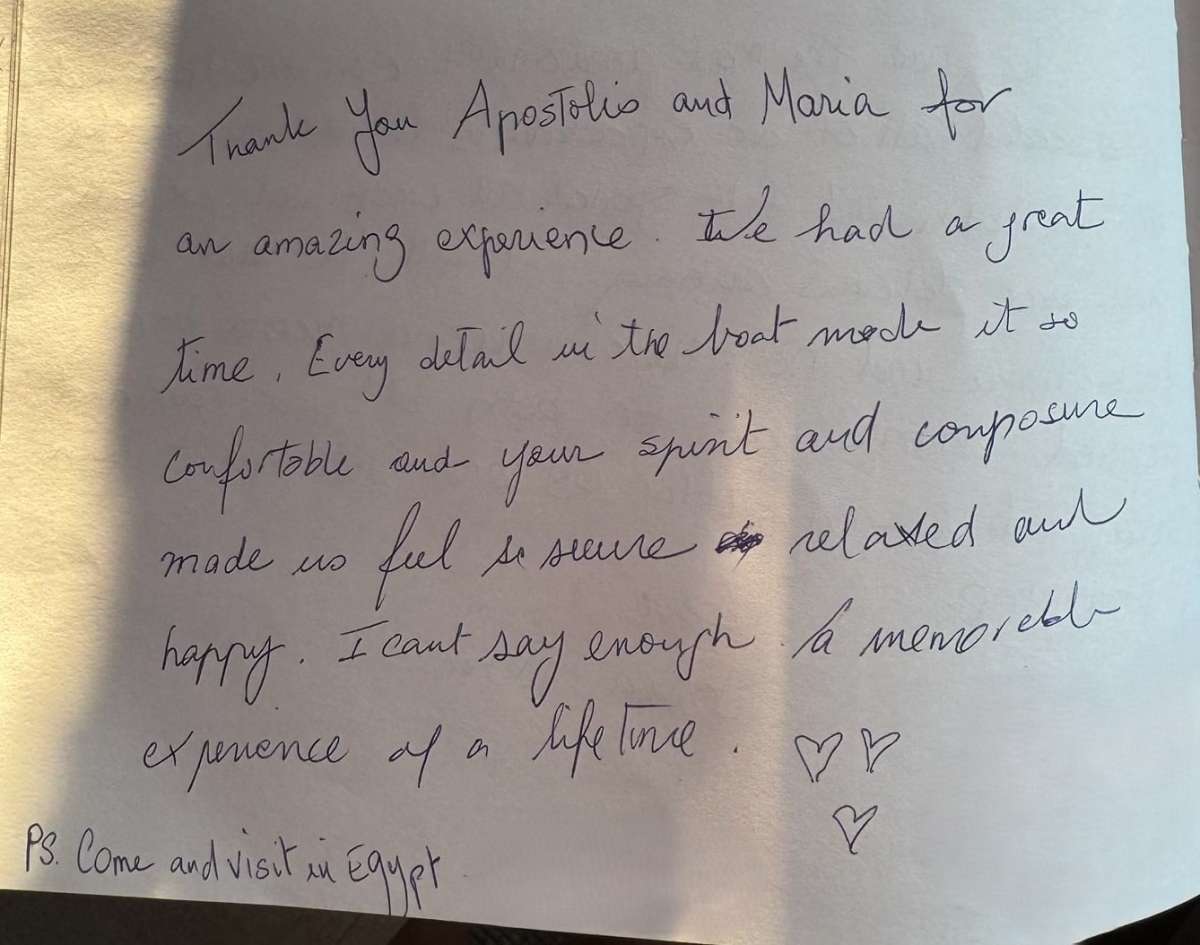 Thank You Apostolis and Maria for
an amazing experience. We had a great
time. Every detail in the boat made it so
confortable and your spirit and composure
made us feel so secure relaxed and
happy. I cant say enough. A memorable
experience of a lifetime. ♡♡
♡
PS. Come and visit in Egypt